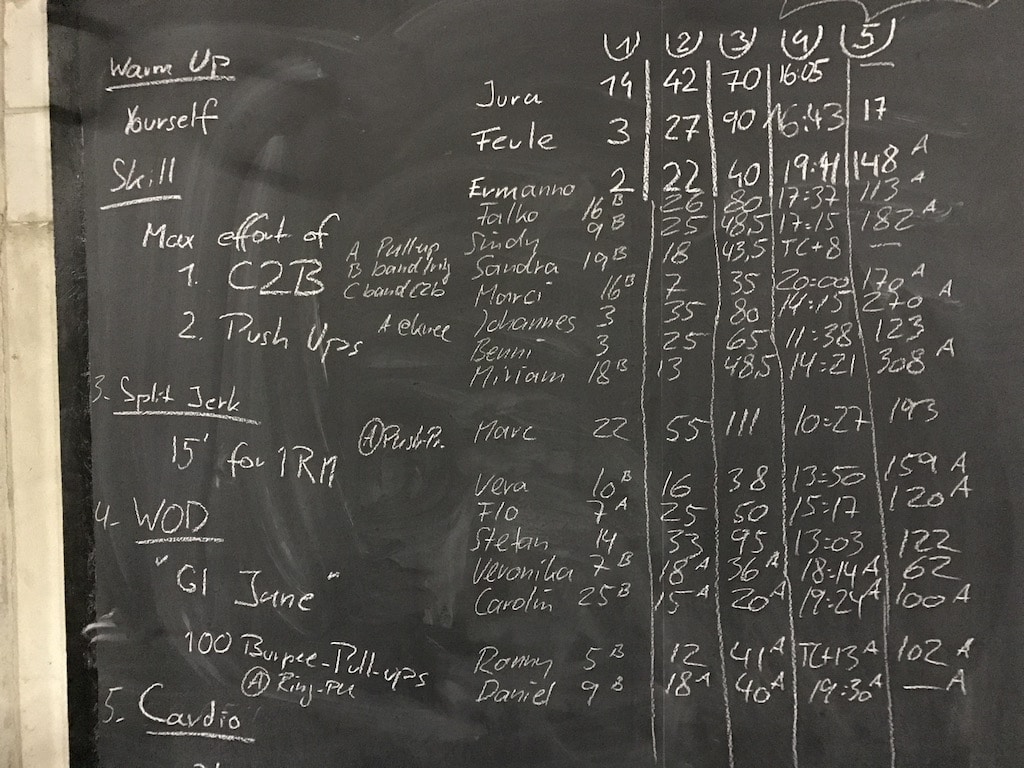 Warm Up
Yourself
Skill
Max effort of
1. C2B
A Pull-up
B band/ring
C band C2b
2. Push Ups
A @knee
3. Split Jerk
15' for 1RM
Ⓐ Push-Pr.
4. WOD
"GI Jane"
100 Burpee-Pull-ups
Ⓐ Ring-Pu
5. Cardio
(1) (2) (3) (4) (5)
Jura 14 42 70 16:05 —
Feule 3 27 90 16:43 17
Ermanno 2 22 40 19:41 148 A
Falko 16 B 26 80 17:37 113 A
Sindy 9 B 25 48,5 17:15 182 A
Sandra 19 B 18 43,5 TC+8 —
Marci 16 B 7 35 20:00 170 A
Johannes 3 35 80 14:15 270 A
Benni 3 25 65 11:38 123
Miriam 18 B 13 48,5 14:21 308 A
Marc 22 55 111 10:27 193
Vera 10 B 16 38 13:50 159 A
Flo 7 A 25 50 15:17 120 A
Stefan 14 33 95 13:03 122
Veronika 7 B 18 A 36 A 18:14 A 62
Carolin 25 B 15 A 20 A 19:24 A 100 A
Ronny 5 B 12 41 A TC+13 A 102 A
Daniel 9 B 18 A 40 A 19:30 A — A